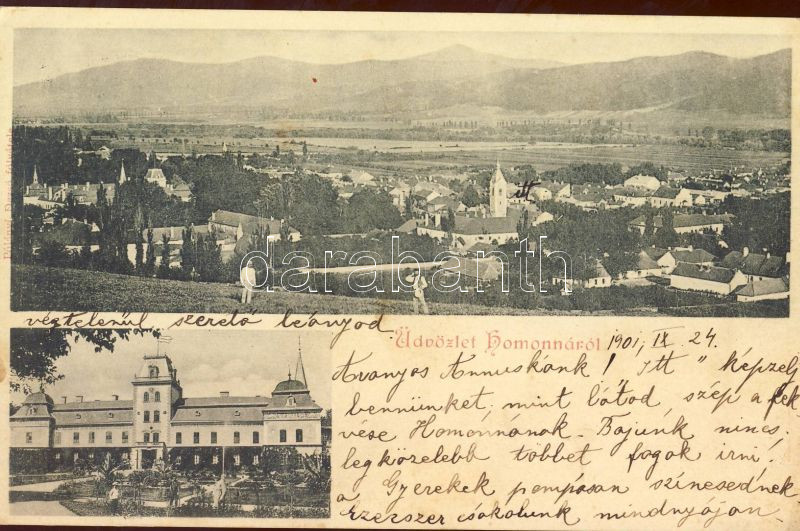 itt
darabanth
végtelenül szerető leányod
Üdvözlet Homonnáról 1901, IX. 24.
Aranyos Annuskánk! „Itt" képzelj
bennünket, mint látod szép a fek
vése Homonnának. Bajunk nincs.
legközelebb többet fogok irni!
a Gyerekek pompásan szinesednek
Ezerszer csókolunk mindnyájan.